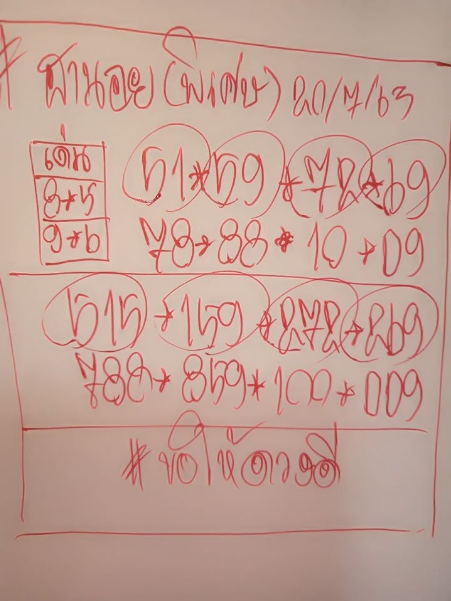 # ฮานอย (พิเศษ) 20/7/63
เด่น
8*5
9*6
51*59*72*69
78*88*10*09
515*159*272*269
788*859*100*009
#ขอให้ดวงดี